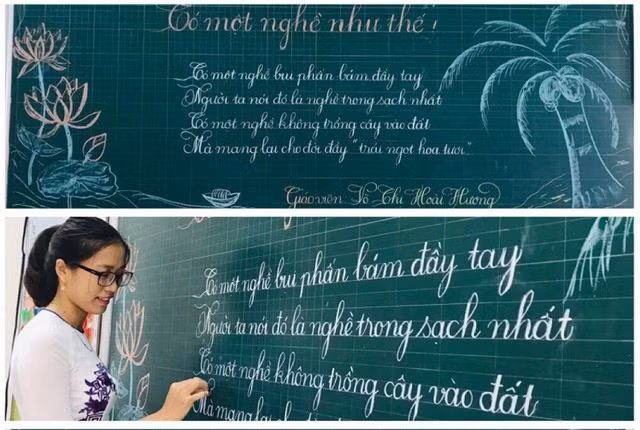 Có một nghề như thế!
Có một nghề bụi phấn bám đầy tay
Người ta nói đó là nghề trong sạch nhất
Có một nghề không trồng cây vào đất
Mà mang lại cho đời đầy "trái ngọt hoa tươi"
Giáo viên: Võ Thị Hoài Hương
Có một nghề bụi phấn bám đầy tay
Người ta nói đó là nghề trong sạch nhất
Có một nghề không trồng cây vào đất
Mà mang lại cho